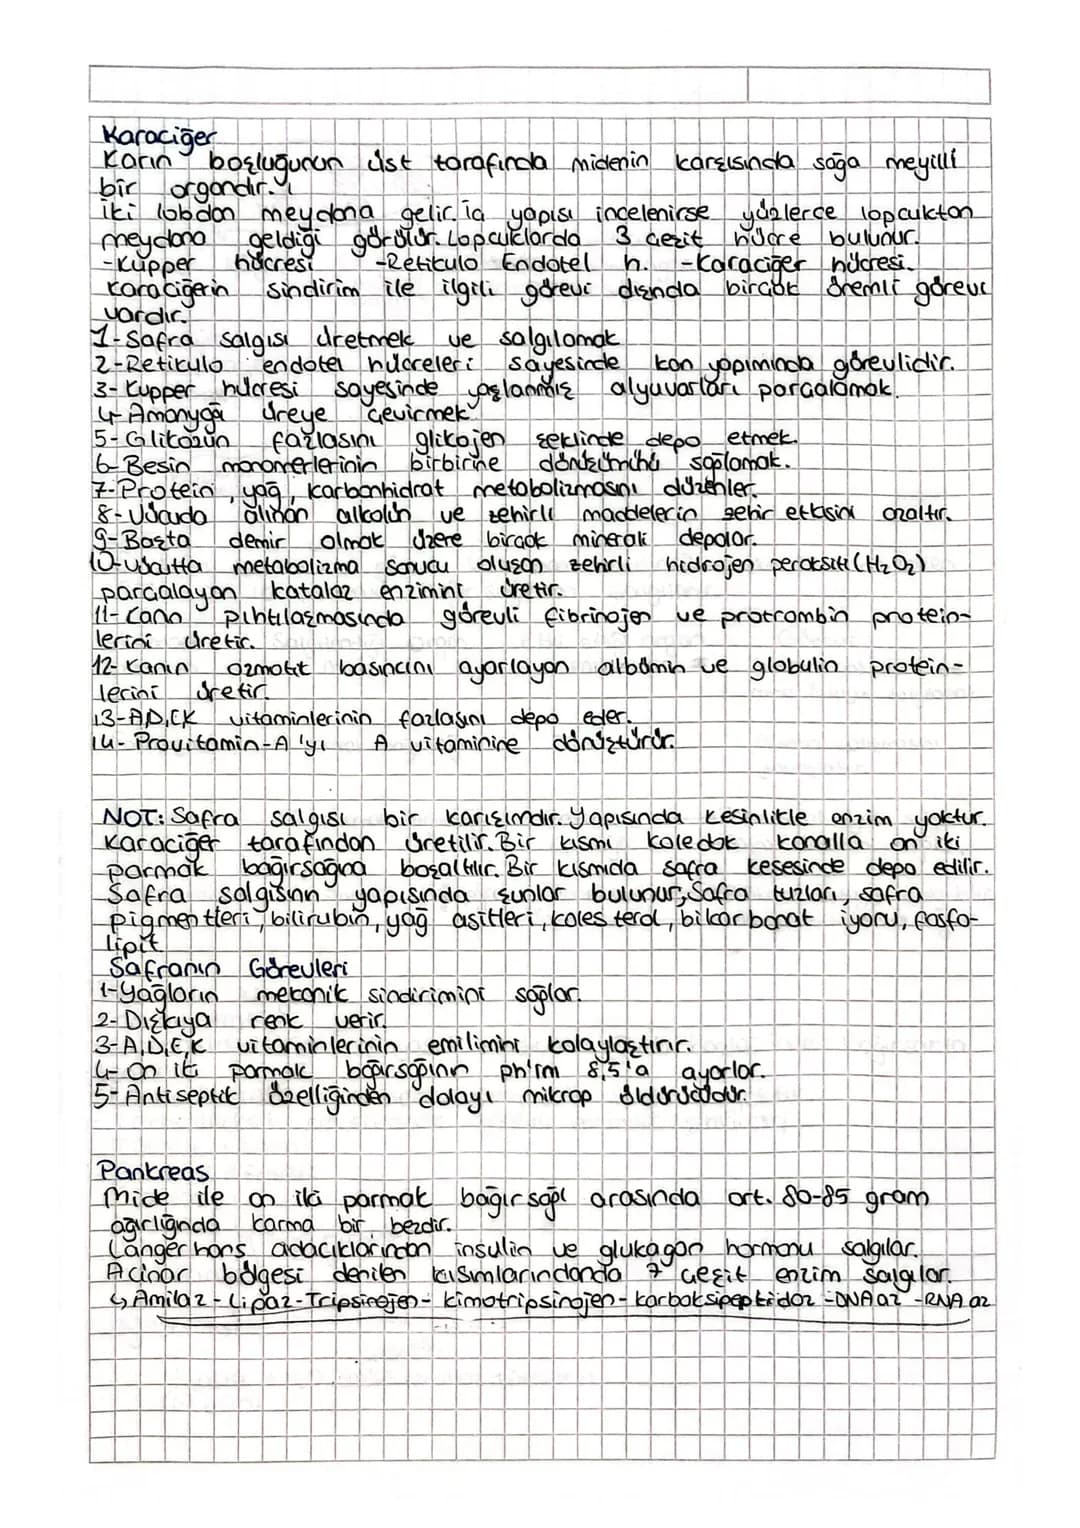 Karaciğer
Karın boşluğunun üst tarafında midenin karşısında sağa meyilli
bir organdır.
İki lobdan meydana gelir. İç yapısı incelenirse yüzlerce lopçuktan
meydana geldiği görülür. Lopçuklarda 3 çeşit hücre bulunur.
-Kupper hücresi -Retikulo Endotel h. -Karaciğer hücresi.
Karaciğerin sindirim ile ilgili görevi dışında birçok önemli görevi
vardır.
1-Safra salgısı üretmek ve salgılamak
2-Retikulo endotel hücreleri sayesinde kan yapımında görevlidir.
3-Kupper hücresi sayesinde yaşlanmış alyuvarları parçalamak.
4-Amonyağı üreye çevirmek
5-Glikozun fazlasını glikojen şeklinde depo etmek.
6-Besin monomerlerinin birbirine dönüşümünü sağlamak.
7-Protein, yağ, karbonhidrat metabolizmasını düzenler.
8-Vücuda alınan alkolün ve zehirli maddelerin zehir etkisini azaltır.
9-Başta demir olmak üzere birçok minerali depolar.
10-Vücutta metabolizma sonucu oluşan zehirli hidrojen peroksiti (H₂O₂)
parçalayan katalaz enzimini üretir.
11-Kanın pıhtılaşmasında görevli fibrinojen ve protrombin protein-
lerini üretir.
12-Kanın ozmotik basıncını ayarlayan albümin ve globulin protein-
lerini üretir.
13-A,D,E,K vitaminlerinin fazlasını depo eder.
14-Provitamin-A'yı A vitaminine dönüştürür.
NOT: Safra salgısı bir karışımdır. Yapısında kesinlikle enzim yoktur.
Karaciğer tarafından üretilir. Bir kısmı koledok kanalla on iki
parmak bağırsağına boşaltılır. Bir kısmıda safra kesesinde depo edilir.
Safra salgısının yapısında şunlar bulunur; Safra tuzları, safra
pigmentleri, bilirubin, yağ asitleri, kolesterol, bikarbonat iyonu, fosfo-
lipit
Safranın Görevleri
1-Yağların mekanik sindirimini sağlar.
2-Dışkıya renk verir.
3-A,D,E,K vitaminlerinin emilimini kolaylaştırır.
4-On iki parmak bağırsağının ph'ını 8,5'a ayarlar.
5-Antiseptik özelliğinden dolayı mikrop öldürücüdür.
Pankreas
Mide ile on iki parmak bağırsağı arasında ort. 80-85 gram
ağırlığında karma bir bezdir.
Langerhans adacıklarından insulin ve glukagon hormonu salgılar.
Acinar bölgesi denilen kısımlarındanda 7 çeşit enzim salgılar.
↳ Amilaz - Lipaz - Tripsinojen - kimotripsinojen - karboksipeptidaz - DNA az - RNA az